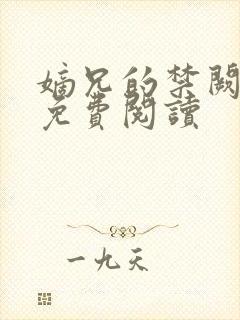 嫡兄的禁闕
免費閱讀
一九天